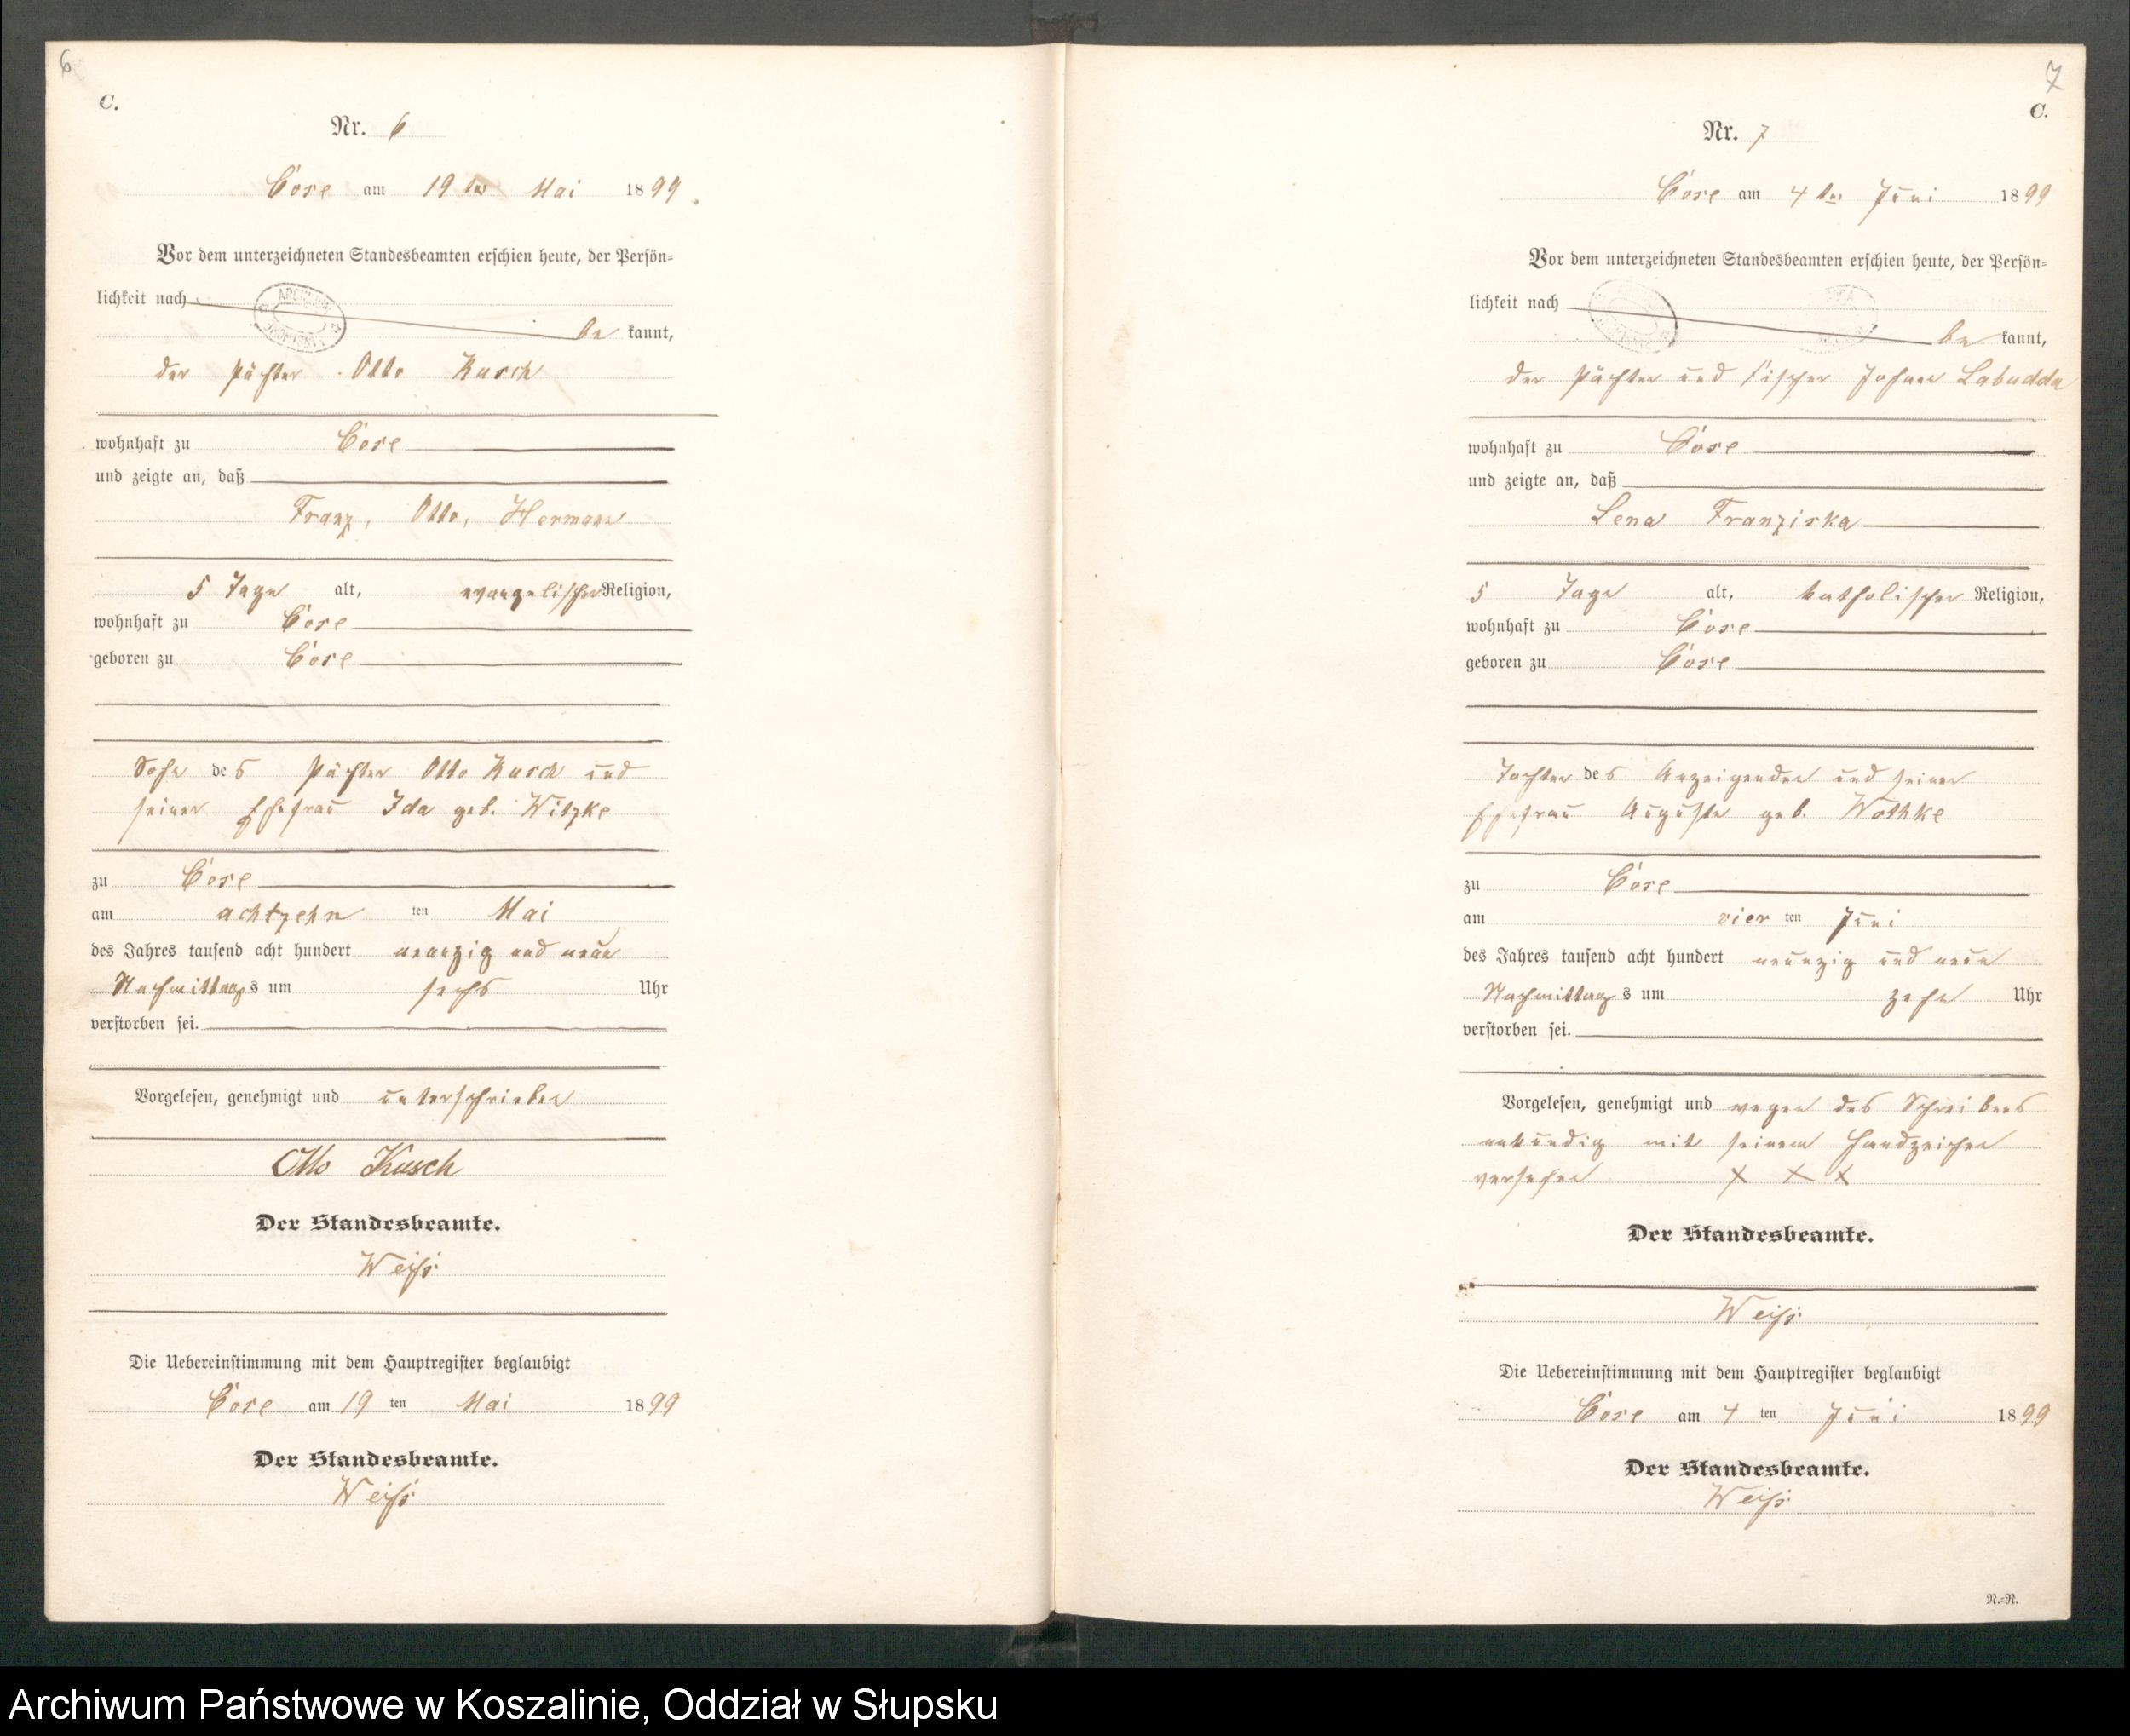 6
C.
Nr. 6
Cose am 19ten Mai 1899.
Vor dem unterzeichneten Standesbeamten erschien heute, der Persön=
lichkeit nach
be kannt,
der Pächter Otto Kusch
wohnhaft zu Cose
und zeigte an, daß
Franz, Otto, Hermann
5 Tage alt, evangelischer Religion,
wohnhaft zu Cose
geboren zu Cose
Sohn des Pächter Otto Kusch und
seiner Ehefrau Ida geb. Witzke
zu Cose
am achtzehn ten Mai
des Jahres tausend acht hundert neunzig und neun
Nachmittags um sechs Uhr
verstorben sei.
Vorgelesen, genehmigt und unterschrieben
Otto Kusch
Der Standesbeamte.
Weiß
Die Uebereinstimmung mit dem Hauptregister beglaubigt
Cose am 19 ten Mai 1899
Der Standesbeamte.
Weiß
7
C.
Nr. 7
Cose am 4ten Juni 1899
Vor dem unterzeichneten Standesbeamten erschien heute, der Persön=
lichkeit nach
be kannt,
der Pächter und Fischer Johann Labudda
wohnhaft zu Cose
und zeigte an, daß
Lena Franziska
5 Tage alt, katholischer Religion,
wohnhaft zu Cose
geboren zu Cose
Tochter des Anzeigenden und seiner
Ehefrau Auguste geb. Wothke
zu Cose
am vier ten Juni
des Jahres tausend acht hundert neunzig und neun
Nachmittag s um zehn Uhr
verstorben sei.
Vorgelesen, genehmigt und wegen des Schreibens
unkundig mit seinem Handzeichen
versehen X X X
Der Standesbeamte.
Weiß
Die Uebereinstimmung mit dem Hauptregister beglaubigt
Cose am 4 ten Juni 1899
Der Standesbeamte.
Weiß
N.=N.
Archiwum Państwowe w Koszalinie, Oddział w Słupsku